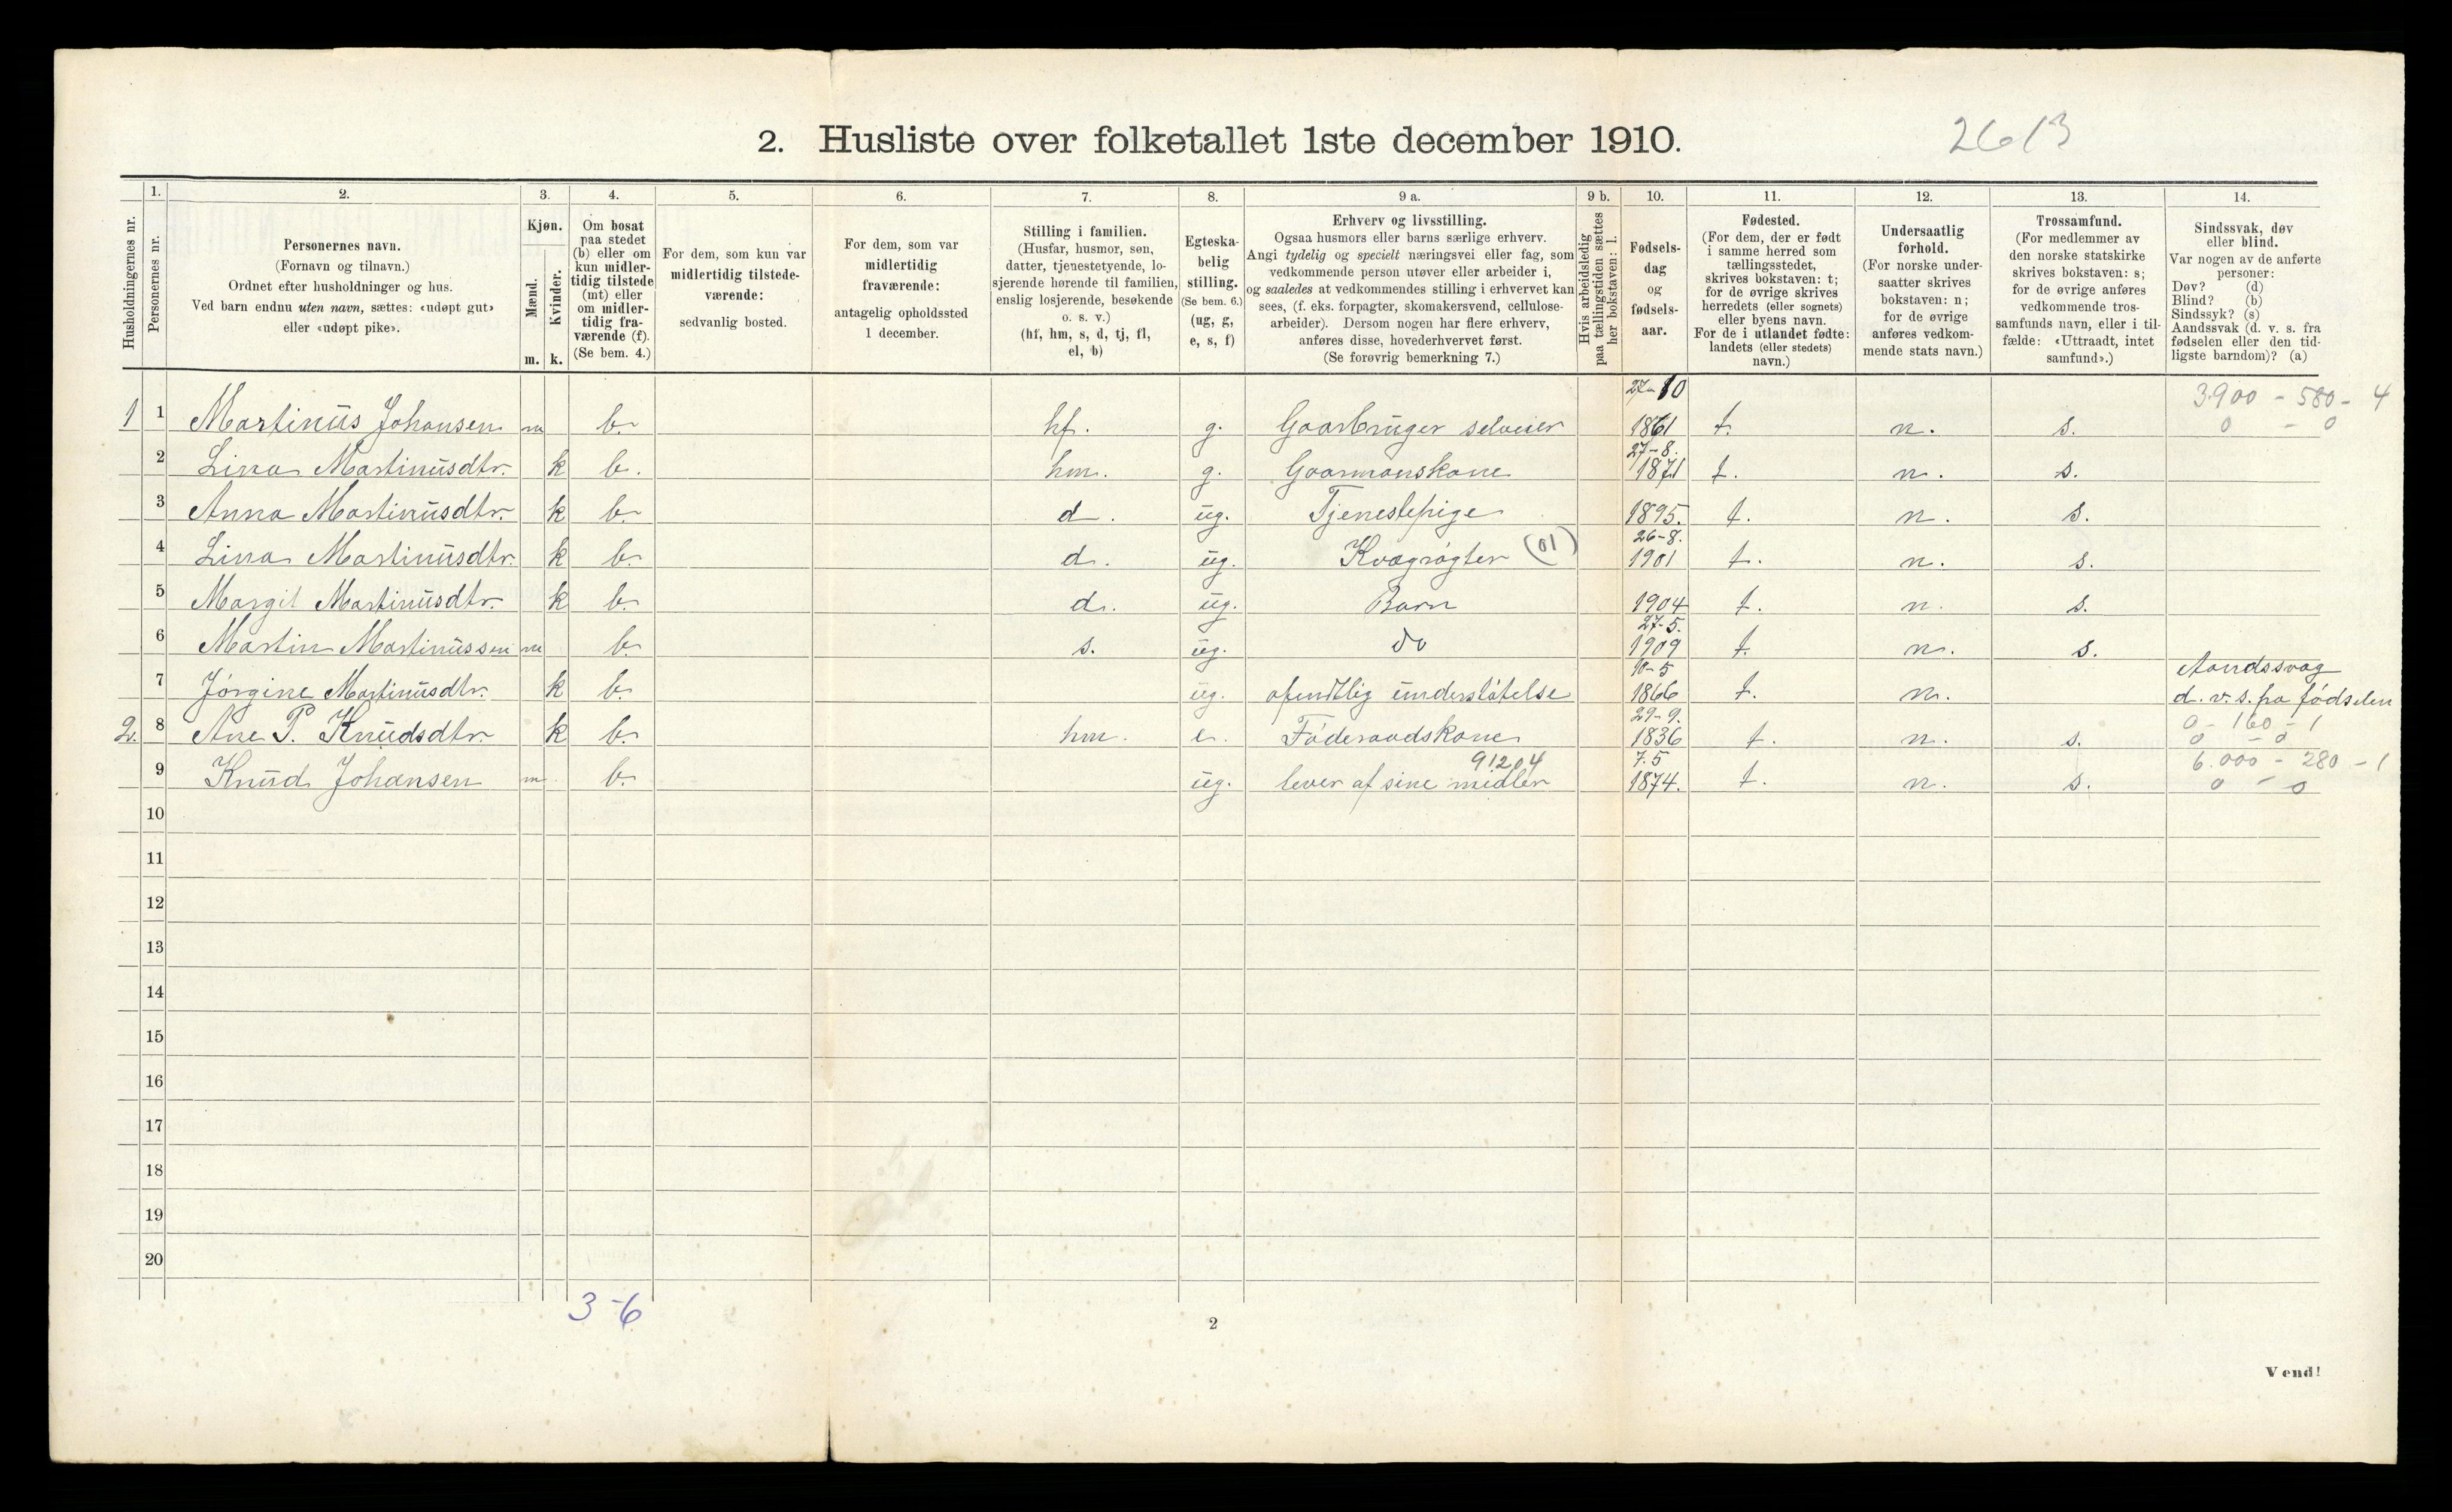 2. Husliste over folketallet 1ste december 1910.
2613
1. 2. 3. 4. 5. 6. 7. 8. 9 a. 9 b. 10. 11. 12. 13. 14.
Husholdningernes nr.
Personernes nr.
Personernes navn.
(Fornavn og tilnavn.)
Ordnet efter husholdninger og hus.
Ved barn endnu uten navn, sættes: «udøpt gut»
eller «udøpt pike».
Kjøn.
Mænd.
Kvinder.
m. k.
Om bosat
paa stedet
(b) eller om
kun midler-
tidig tilstede
(mt) eller
om midler-
tidig fra-
værende (f).
(Se bem. 4.)
For dem, som kun var
midlertidig tilstede-
værende:
sedvanlig bosted.
For dem, som var
midlertidig
fraværende:
antagelig opholdssted
1 december.
Stilling i familien.
(Husfar, husmor, søn,
datter, tjenestetyende, lo-
sjerende hørende til familien,
enslig losjerende, besøkende
o. s. v.)
(hf, hm, s, d, tj, fl,
el, b)
Egteska-
belig
stilling.
(Se bem. 6.)
(ug, g,
e, s, f)
Erhverv og livsstilling.
Ogsaa husmors eller barns særlige erhverv.
Angi tydelig og specielt næringsvei eller fag, som
vedkommende person utøver eller arbeider i,
og saaledes at vedkommendes stilling i erhvervet kan
sees, (f. eks. forpagter, skomakersvend, cellulose-
arbeider). Dersom nogen har flere erhverv,
anføres disse, hovederhvervet først.
(Se forøvrig bemerkning 7.)
Hvis arbeidsledig
paa tællingstiden sættes
her bokstaven: l.
Fødsels-
dag
og
fødsels-
aar.
Fødested.
(For dem, der er født
i samme herred som
tællingsstedet,
skrives bokstaven: t;
for de øvrige skrives
herredets (eller sognets)
eller byens navn.
For de i utlandet fødte:
landets (eller stedets)
navn.)
Undersaatlig
forhold.
(For norske under-
saatter skrives
bokstaven: n;
for de øvrige
anføres vedkom-
mende stats navn.)
Trossamfund.
(For medlemmer av
den norske statskirke
skrives bokstaven: s;
for de øvrige anføres
vedkommende tros-
samfunds navn, eller i til-
fælde: «Uttraadt, intet
samfund».)
Sindssvak, døv
eller blind.
Var nogen av de anførte
personer:
Døv? (d)
Blind? (b)
Sindssyk? (s)
Aandssvak (d. v. s. fra
fødselen eller den tid-
ligste barndom)? (a)
27-10 3900 - 580 - 4
1 1 Martinus Johansen m b. hf. g. Gaarbruger selveier 1861 t. n. s. 0 - 0
27-8.
2 Lina Martinusdtr. k b. hm. g. Gaarmanskone 1871 t. n. s.
3 Anna Martinusdtr. k b. d. ug. Tjenestepige 1895. t. n. s.
26-8.
4 Lina Martinusdtr. k b. d. ug. Kvægrøgter (01) 1901 t. n. s.
5 Margit Martinusdtr. k b. d. ug. Barn 1904 t. n. s.
27-5.
6 Martin Martinussen m b. s. ug. do 1909 t. n. s.
10-5 Aandssvag
7 Jørgine Martinusdtr. k b. ug. ofendtlig understøtelse 1866 t. n. d. v. s. fra fødselen
29-9. 0 - 160 - 1
2. 8 Ane P. Knudsdtr. k b. hm. e. Føderaadskone 1836 t. n. s. 0 - 0
91204 7.5 6.000 - 280 - 1
9 Knud Johansen m b. ug. lever af sine midler 1874. t. n. s. 0 - 0
10
11
12
13
14
15
16
17
18
19
20
3-6
2
Vend!